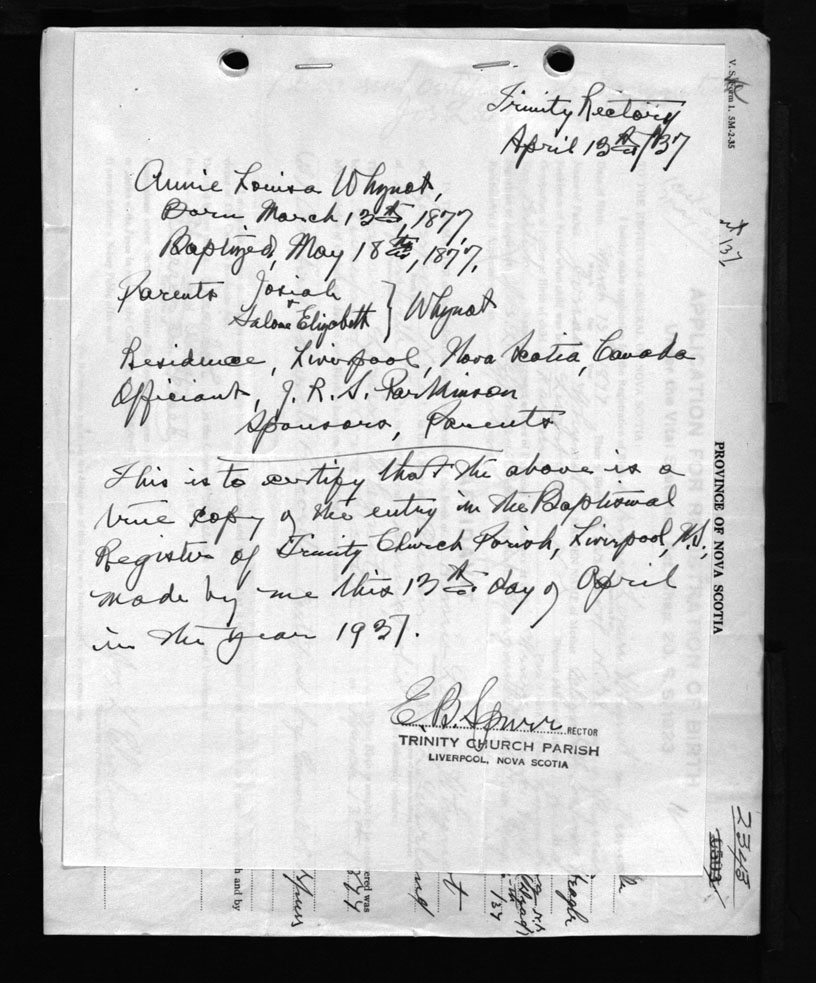 Trinity Rectory
April 13th/37
Annie Louisa Whynot,
Born March 13th, 1877,
Baptized, May 18th, 1877,
Parents Josiah
+
Salome Elizabeth } Whynot
Residence, Liverpool, Nova Scotia, Canada
Officiant, J. R. S. Parkinson
Sponsors, Parents
This is to certify that the above is a
true copy of the entry in the Baptismal
Register of Trinity Church Parish, Liverpool, N.S.,
made by me this 13th day of April
in the year 1937.
E. B. Spurr RECTOR
TRINITY CHURCH PARISH
LIVERPOOL, NOVA SCOTIA
PROVINCE OF NOVA SCOTIA
2343
h and by
ered was